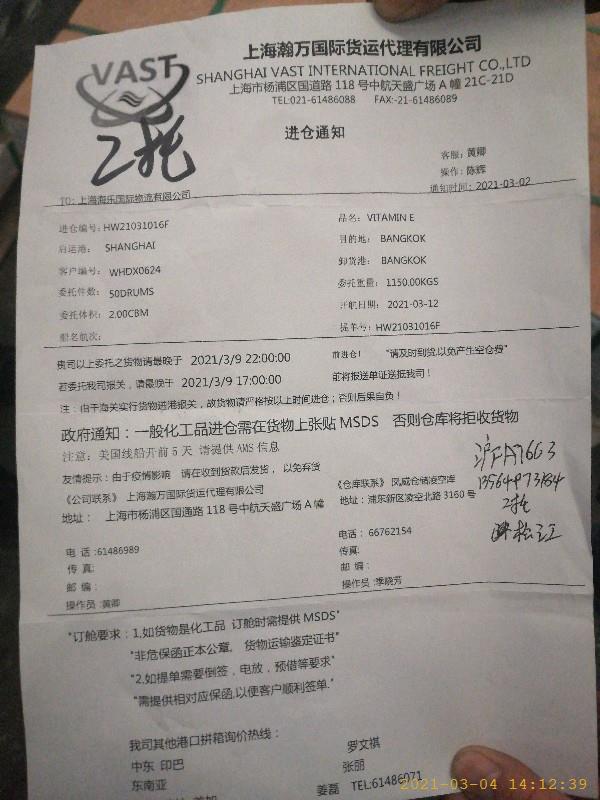 VAST
上海瀚万国际货运代理有限公司
SHANGHAI VAST INTERNATIONAL FREIGHT CO.,LTD
上海市杨浦区国道路 118 号中航天盛广场 A 幢 21C-21D
TEL:021-61486088 FAX:-21-61486089
2托
进仓通知
客服: 黄卿
操作: 陈辉
通知时间: 2021-03-02
TO: 上海海乐国际物流有限公司
进仓编号: HW21031016F 品名: VITAMIN E
启运港: SHANGHAI 目的地: BANGKOK
客户编号: WHDX0624 卸货港: BANGKOK
委托件数: 50DRUMS 委托重量: 1150.00KGS
委托体积: 2.00CBM 开航日期: 2021-03-12
船名航次: 提单号: HW21031016F
贵司以上委托之货物请最晚于 2021/3/9 22:00:00 前进仓! "请及时到货,以免产生空仓费"
若委托我司报关, 请最晚于 2021/3/9 17:00:00 前将报送单证送抵我司!
注: 由于海关实行货物运港报关, 故货物请严格按以上时间进仓; 否则后果自负!
政府通知:一般化工品进仓需在货物上张贴 MSDS 否则仓库将拒收货物
注意: 美国线船开前 5 天 请提供 AMS 信息
友情提示: 由于疫情影响 请在收到拨款后发货, 以免弃货
《公司联系》 上海瀚万国际货运代理有限公司 《仓库联系》 凤威仓储凌空库
地址: 上海市杨浦区国通路 118 号中航天盛广场 A 幢 地址: 浦东新区凌空北路 3160 号
13564973184
2托
松江
电 话 :61486989 电话: 66762154
传 真: 传真:
邮 编: 邮 编:
操作员 :黄卿 操作员 :季晓芳
"订舱要求: 1.如货物是化工品 订舱时需提供 MSDS"
"非危保函正本公章, 货物运输鉴定证书"
"2.如提单需要倒签, 电放, 预借等要求"
"需提供相对应保函,以便客户顺利签单."
我司其他港口拼箱询价热线:
中东 印巴 罗文祺
东南亚 张丽
姜磊 TEL:61486071
2021-03-04 14:12:39